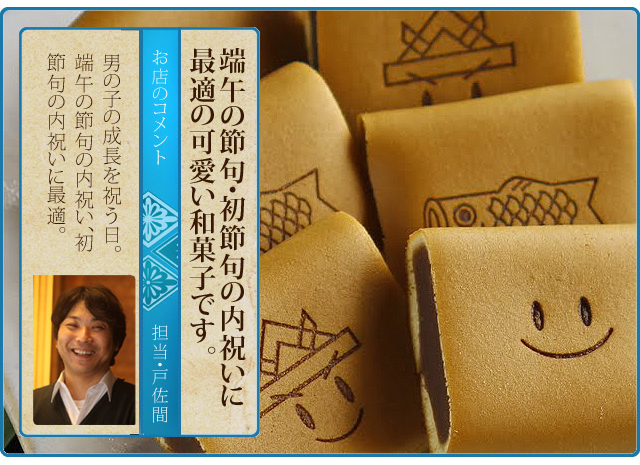 端午の節句・初節句の内祝いに
最適の可愛い和菓子です。
お店のコメント
担当・戸佐間
男の子の成長を祝う日。
端午の節句の内祝い、初
節句の内祝いに最適。